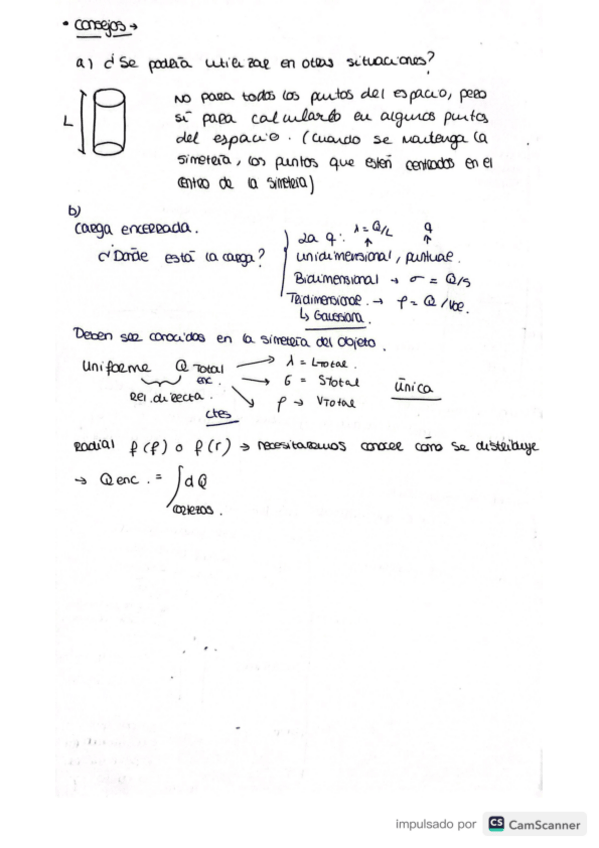 • consejos →
a) ¿Se podría utilizar en otras situaciones?
L
No para todos los puntos del espacio, pero
sí para calcularlo en algunos puntos
del espacio. (Cuando se mantenga la
simetría, los puntos que estén centrados en el
centro de la simetría)
b)
Carga encerrada.
¿Dónde está la carga?
La q: λ = Q/L q
unidimensional, puntual.
Bidimensional → σ = Q/S
Tridimensional → ρ = Q/Vol
↳ Gaussiana.
Deben ser conocidos en la simetría del objeto.
Uniforme Q Total → λ = LTotal.
enc. → σ = STotal única
Rel. directa. → ρ → VTotal
ctes
Radial f(ρ) o f(r) → necesitaremos conocer cómo se distribuye
→ Q enc. = ∫dQ